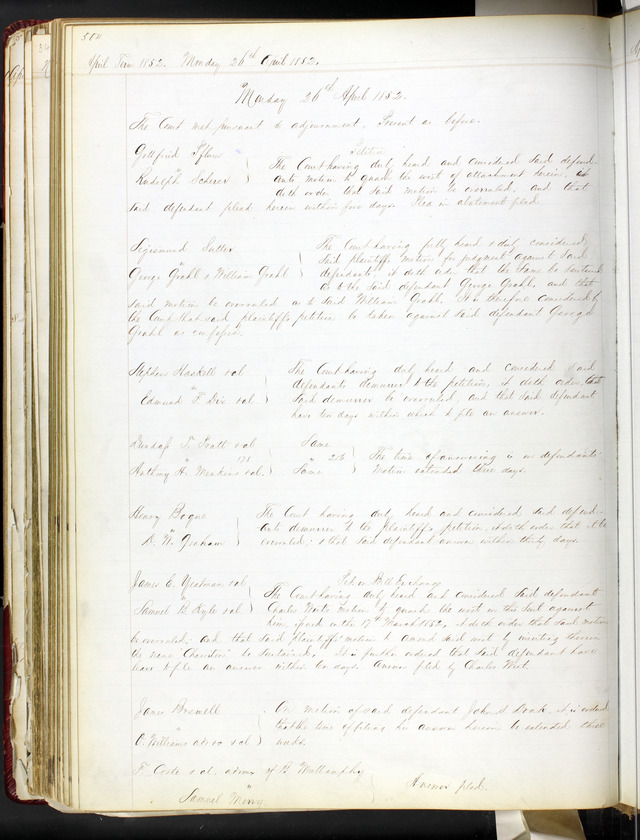 504
April Term 1852. Monday 26th April 1852.
Monday 26th April 1852.
The Court met pursuant to adjournment. Present as before.
Petition
Gottfried
vs
Rudolph Scherer
The Court having duly heard and considered said defend-
ants motion to quash the writ of attachment herein,
doth order that said motion be overruled, and that
said defendant plead herein within five days. Plea in abatement filed
Sigismund Sutter
vs
George Grahl & William Grahl
The Court having fully heard & duly considered
said plaintiffs motion for judgment against said
defendants, it doth order that the same be sustained
as to the said defendant George Grahl, and that
said motion be overruled as to said William Grahl. It is therefore considered by
the Court that said plaintiffs petition be taken against said defendant George
Grahl as confessed.
Stephen Haskell et al
vs
Edmund F. et al
The Court having duly heard and considered said
defendants demurrer to the petition, it doth order that
said demurrer be overruled, and that said defendant
have ten days within which to file an answer.
T. Pratt et al
175
Anthony H. et al
Same
vs 216
Same
The time of answering in on defendants
motion extended three days.
Henry Bogue
vs
D. W. Graham
The Court having duly heard and considered said defend-
ants demurrer to the plaintiffs petition, it doth order that it be
overruled; & that said defendant answer within thirty days.
James E. Yeatman et al
vs
Samuel B. Kyle et al
Pet on Bill Exchange
The Court having duly heard and considered said defendant
Charles Wests motion to quash the writ in this suit against
him filed on the 12th March 1852, it doth order that said motion
be overruled; and that said plaintiffs motion to amend said writ by inserting therein
the name "Chandler" be sustained. It is further ordered that said defendant have
leave to file an answer within six days. Answer filed by Charles West.
James
vs
O. Williams et al
On motion of said defendant John S. it is ordered
that the time of filing his answer herein be extended three
weeks.
F. Coste et al. admr of B. Mullanphy
vs
Samuel Merry
Answer filed.